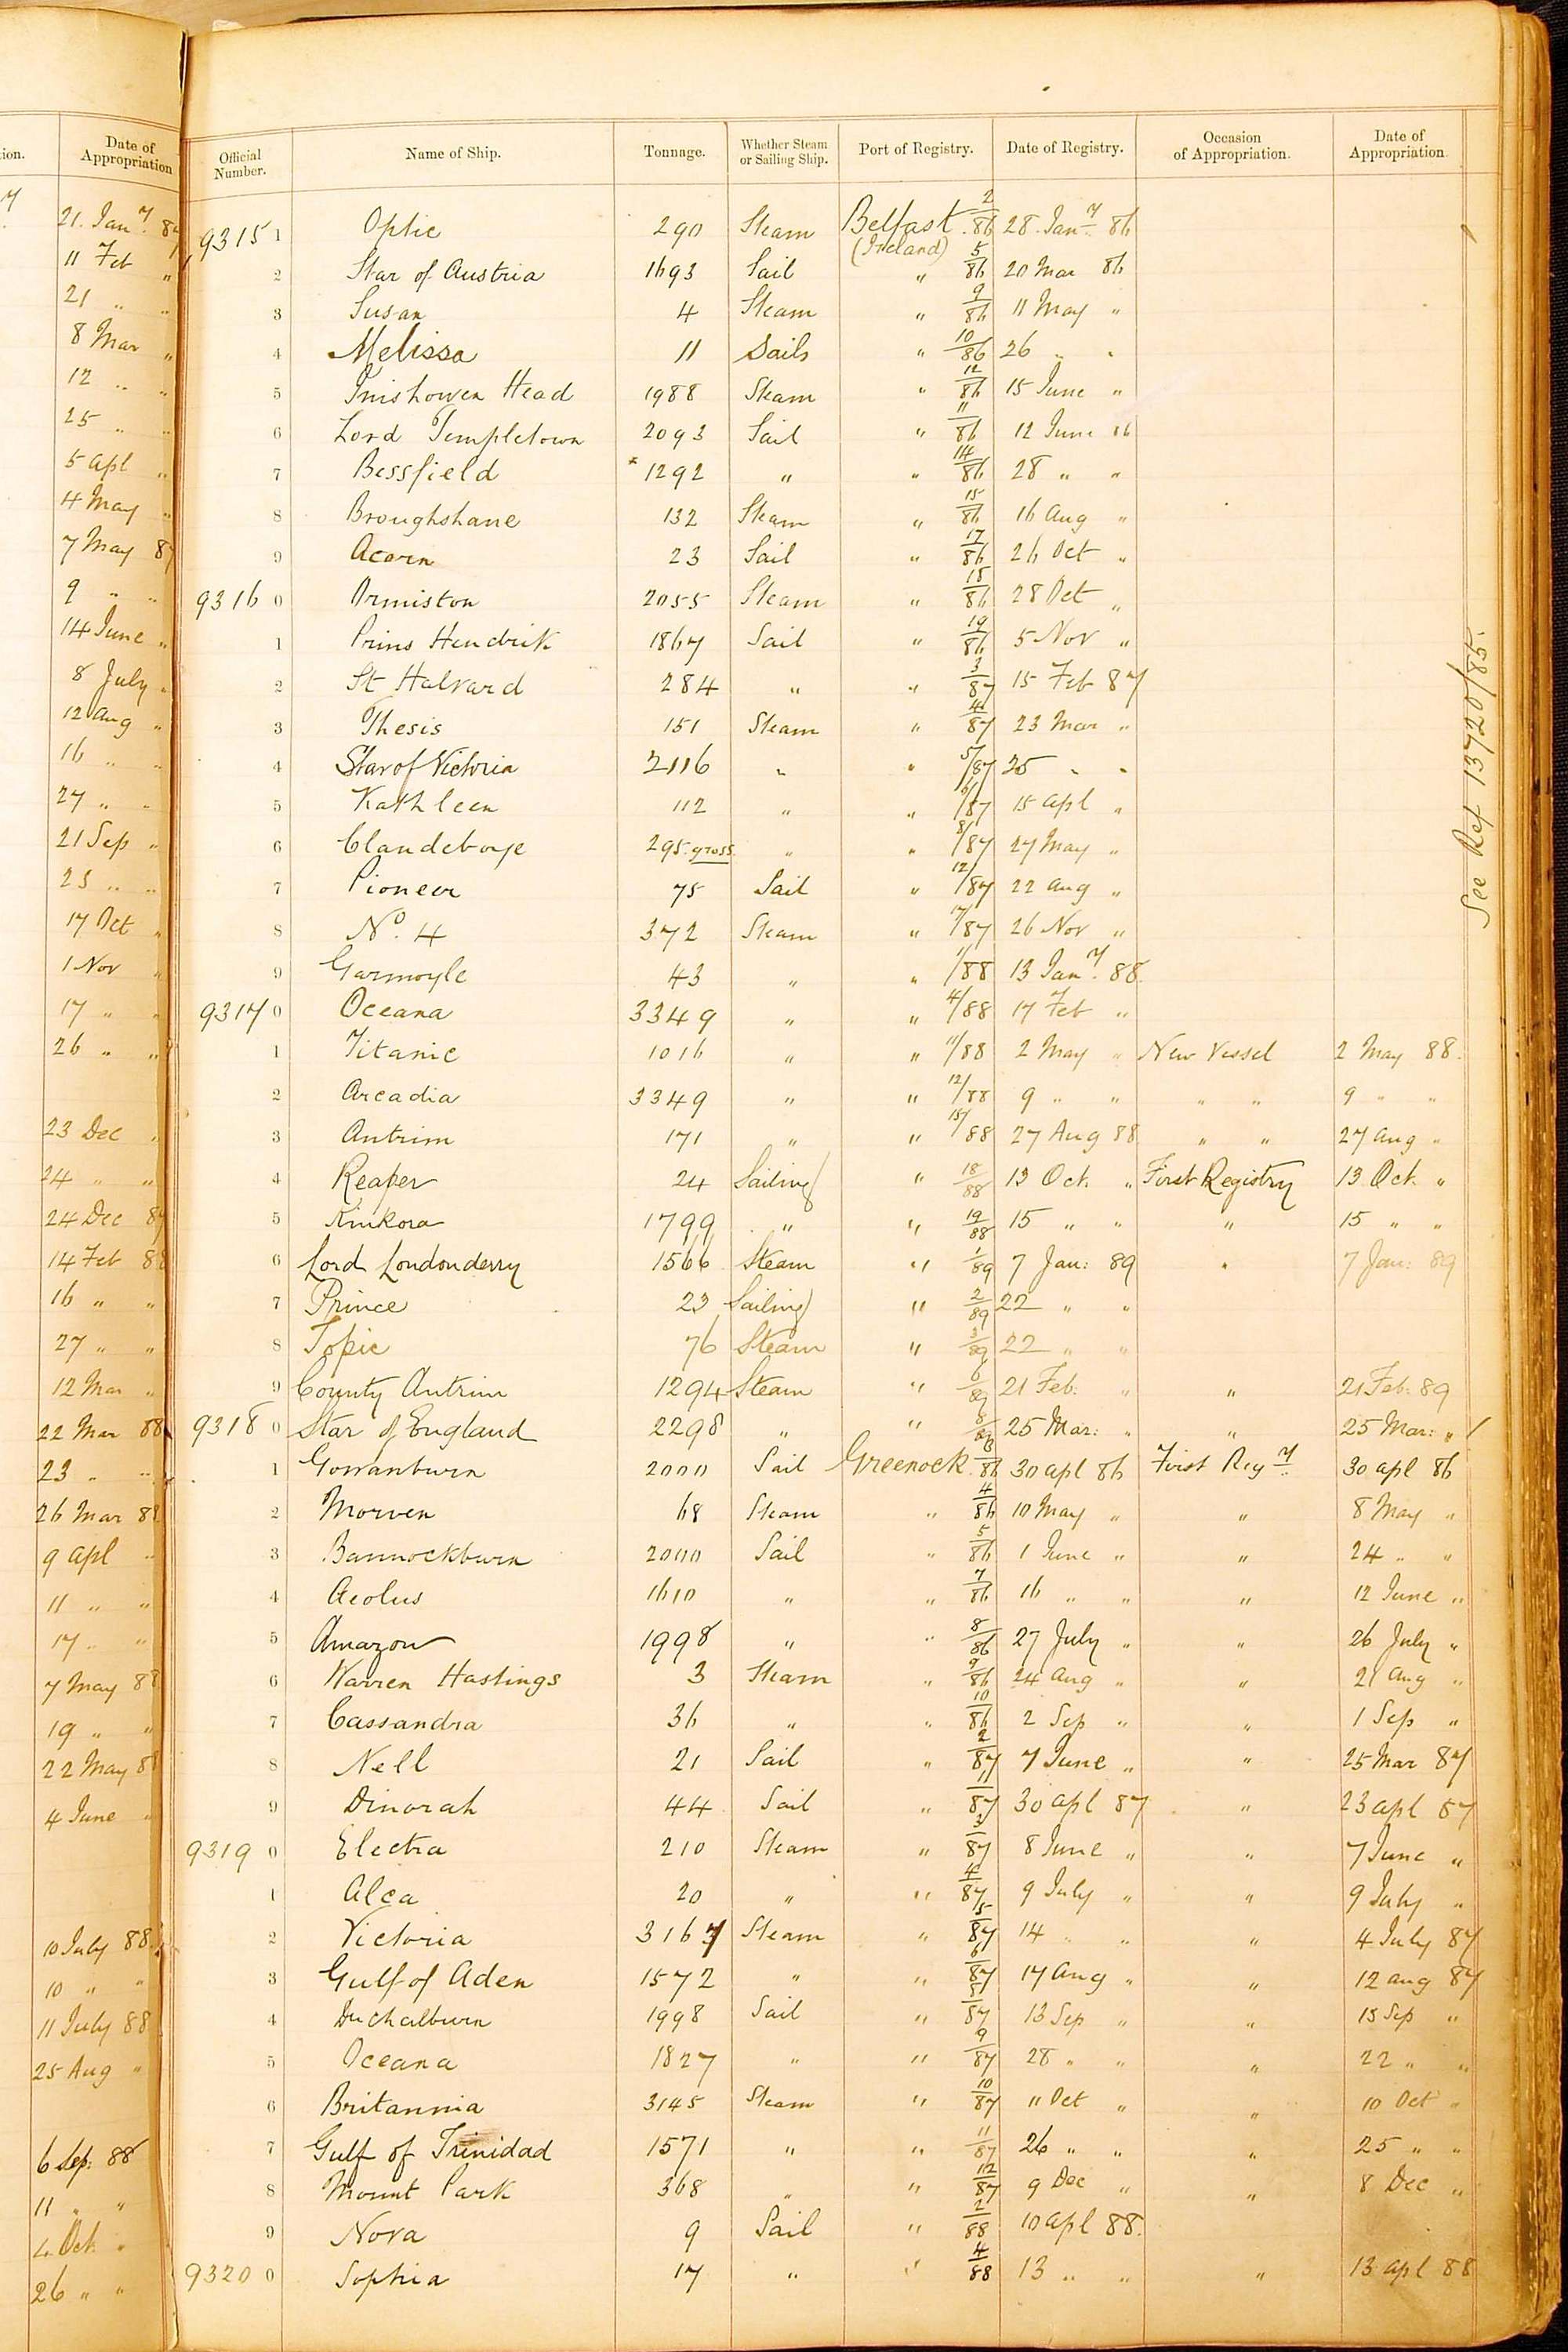 tion. Date of Appropriation Official Number. Name of Ship. Tonnage. Whether Steam or Sailing Ship. Port of Registry. Date of Registry. Occasion of Appropriation. Date of Appropriation.
21. Jany. 87 9315 1 Optic 290 Steam Belfast (Ireland) 2/86 28. Jany 86
11 Feb „ 2 Star of Austria 1693 Sail „ 5/86 20 Mar 86
21 „ „ 3 Susan 4 Steam „ 9/86 11 May „
8 Mar „ 4 Melissa 11 Sails „ 10/86 26 „ „
12 „ „ 5 Inishowen Head 1988 Steam „ 12/86 15 June „
25 „ „ 6 Lord Templetown 2093 Sail „ 11/86 12 June 86
5 Apl „ 7 Bessfield 1292 „ „ 14/86 28 „ „
4 May „ 8 Broughshane 132 Steam „ 15/86 16 Aug „
7 May 87 9 Acorn 23 Sail „ 17/86 26 Oct „
9 „ „ 9316 0 Ormiston 2055 Steam „ 18/86 28 Oct „
14 June „ 1 Prins Hendrik 1867 Sail „ 19/86 5 Nov „
8 July „ 2 St Halvard 284 „ „ 3/87 15 Feb 87
12 Aug „ 3 Thesis 151 Steam „ 4/87 23 Mar „
16 „ „ 4 Star of Victoria 2116 „ „ 5/87 25 „ „
27 „ „ 5 Kathleen 112 „ „ 6/87 15 Apl „
21 Sep „ 6 Clandeboye 295 gross „ „ 8/87 27 May „
23 „ „ 7 Pioneer 75 Sail „ 12/87 22 Aug „
17 Oct „ 8 No. 4 372 Steam „ 17/87 26 Nov „
1 Nov „ 9 Garmoyle 43 „ „ 1/88 13 Jany. 88
17 „ „ 9317 0 Oceana 3349 „ „ 4/88 17 Feb „
26 „ „ 1 Titanic 1016 „ „ 11/88 2 May „ New Vessel 2 May 88.
2 Arcadia 3349 „ „ 12/88 9 „ „ „ „ 9 „ „
23 Dec „ 3 Antrim 171 „ „ 15/88 27 Aug 88 „ „ 27 Aug „
24 „ „ 4 Reaper 24 Sailing „ 18/88 13 Oct. „ First Registry 13 Oct. „
24 Dec 87 5 Kinkora 1799 „ „ 19/88 15 „ „ „ 15 „ „
14 Feb 88 6 Lord Londonderry 1566 Steam „ 1/89 7 Jan: 89 „ 7 Jan: 89
16 „ „ 7 Prince 23 Sailing „ 2/89 22 „ „
27 „ „ 8 Topic 76 Steam „ 3/89 22 „ „
12 Mar „ 9 County Antrim 1294 Steam „ 6/89 21 Feb: „ „ 21 Feb: 89
22 Mar 88 9318 0 Star of England 2298 „ „ 8/89 25 Mar: „ „ 25 Mar: „
23 „ „ 1 Gowanburn 2000 Sail Greenock 3/86 30 Apl 86 First Regy. 30 Apl 86
26 Mar 88 2 Morven 68 Steam „ 4/86 10 May „ „ 8 May „
9 Apl „ 3 Bannockburn 2000 Sail „ 5/86 1 June „ „ 24 „ „
11 „ „ 4 Aeolus 1610 „ „ 7/86 16 „ „ „ 12 June „
17 „ „ 5 Amazon 1998 „ „ 8/86 27 July „ „ 26 July „
7 May 88 6 Warren Hastings 3 Steam „ 9/86 24 Aug „ „ 21 Aug „
19 „ „ 7 Cassandra 36 „ „ 10/86 2 Sep „ „ 1 Sep „
22 May 88 8 Nell 21 Sail „ 2/87 7 June „ „ 25 Mar 87
4 June „ 9 Dinorah 44 Sail „ 1/87 30 Apl 87 „ 23 Apl 87
9319 0 Electra 210 Steam „ 3/87 8 June „ „ 7 June „
1 Alca 20 „ „ 4/87 9 July „ „ 9 July „
10 July 88 2 Victoria 3167 Steam „ 5/87 14 „ „ „ 4 July 87
10 „ „ 3 Gulf of Aden 1572 „ „ 6/87 17 Aug „ „ 12 Aug 87
11 July 88 4 1998 Sail „ 87 13 Sep „ „ 13 Sep „
25 Aug „ 5 Oceana 1827 „ „ 9/87 28 „ „ „ 22 „ „
6 Britannia 3145 Steam „ 10/87 11 Oct „ „ 10 Oct „
6 Sep: 88 7 Gulf of Trinidad 1571 „ „ 11/87 26 „ „ „ 25 „ „
11 „ „ 8 Mount Park 368 „ „ 12/87 9 Dec „ „ 8 Dec „
4 Oct. „ 9 Nora 9 Sail „ 2/88 10 Apl 88.
26 „ „ 9320 0 Sophia 17 „ „ 4/88 13 „ „ „ 13 Apl 88
See Ref 13720/85.